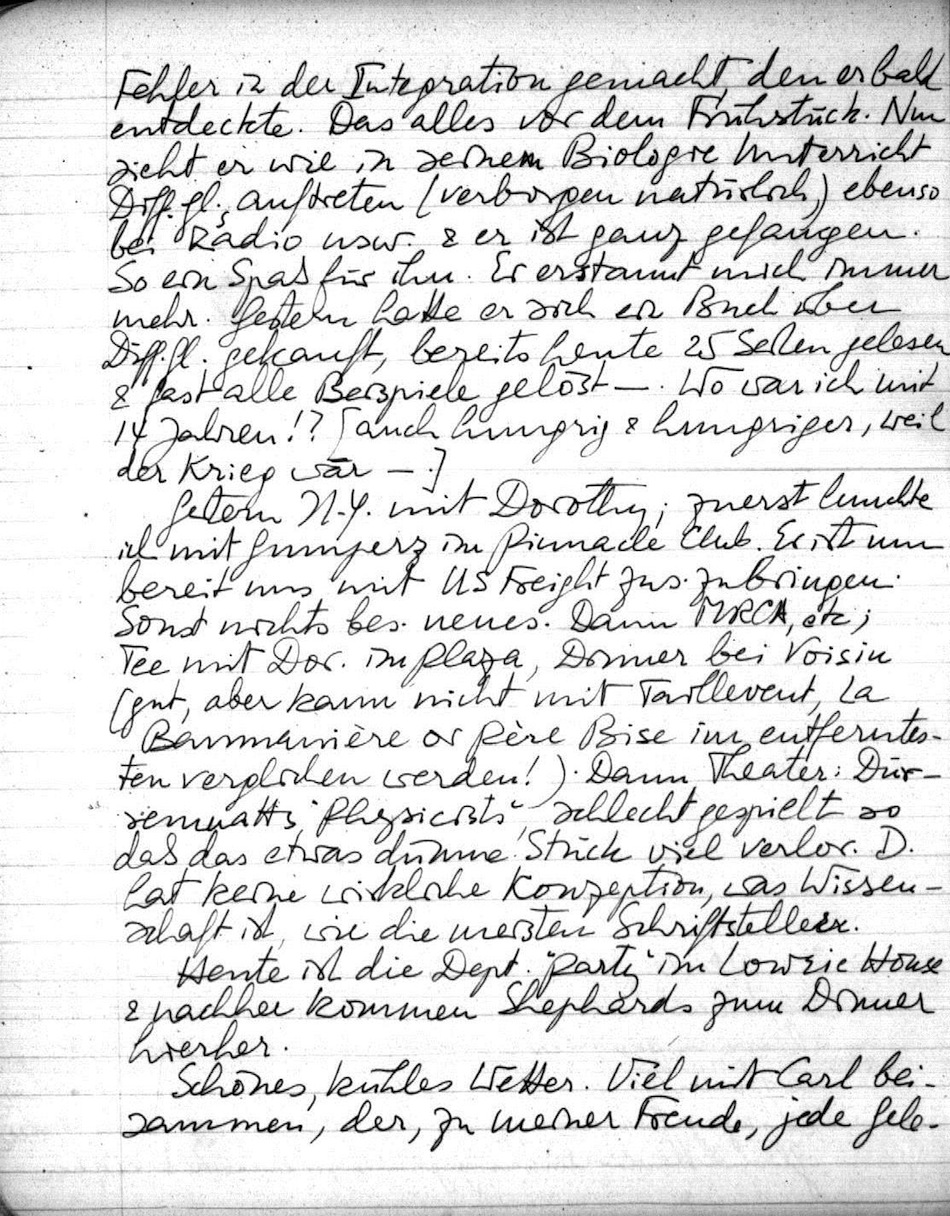 Fehler in der Integration gemacht, den er bald
entdeckte. Das alles vor dem Frühstück. Nun
sieht er wie in seinem Biologie Unterricht
Diff.gl. auftreten (verborgen natürlich) ebenso
bei Radio usw. & er ist ganz gefangen.
So ein Spaß für ihn. Er erstaunt mich immer
mehr. Gestern hatte er sich ein Buch über
Diff.gl. gekauft, bereits heute 25 Seiten gelesen
& fast alle Beispiele gelöst —. Wo war ich mit
14 Jahren!? [auch hungrig & hungriger, weil
der Krieg war — .]
Gestern N.Y. mit Dorothy; zuerst lunchte
ich mit Gumperz im Pinnacle Club. Er ist nun
bereit uns mit US Freight zus. zu bringen.
Sonst nichts bes. neues. Dann MRCA, etc;
Tee mit Dor. im Plaza, Dinner bei Voisin
(gut, aber kann nicht mit Taillevent, La
Baumanière or Père Bise im entferntes-
ten verglichen werden!). Dann Theater: Dür-
renmatts "Physicists", schlecht gespielt so
daß das etwas dünne Stück viel verlor. D.
hat keine wirkliche Konzeption, was Wissen-
schaft ist, wie die meisten Schriftsteller.
Heute ist die Dept. "party" im Lowrie House
& nachher kommen Shephards zum Dinner
hierher.
Schönes, kühles Wetter. Viel mit Carl bei-
sammen, der, zu meiner Freude, jede Gele-